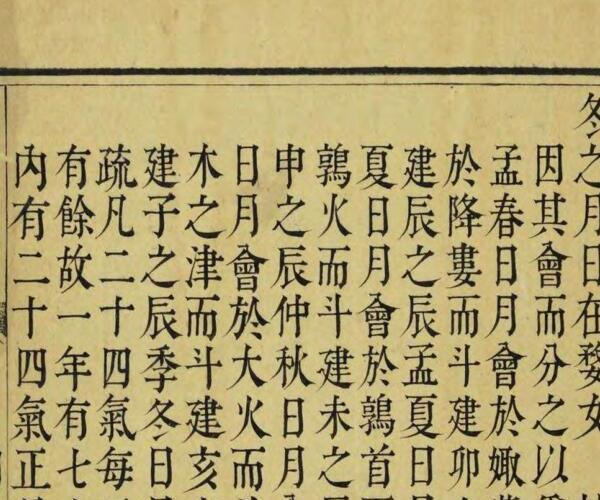 冬之月日在婺女
因其會而分之以
孟春日月會於娵
於降婁而斗建卯
建辰之辰孟夏日
夏日月會於鶉首
鶉火而斗建未之
申之辰仲秋日月
日月會於大火而
木之津而斗建亥
建子之辰季冬日
疏凡二十四氣每
有餘故一年有七
內有二十四氣正